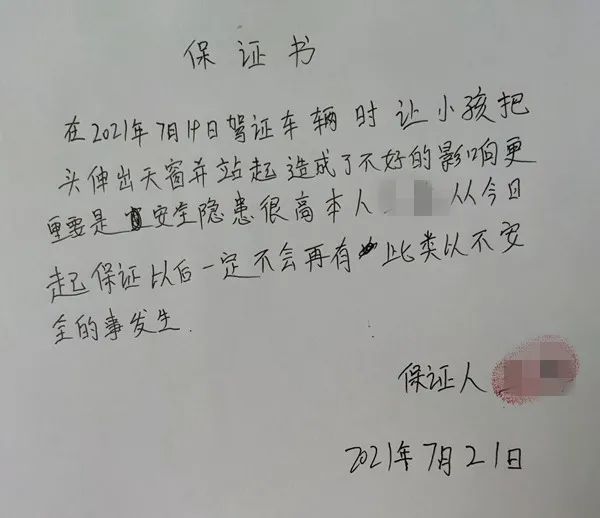 保证书
在2021年7月14日驾证车辆时让小孩把
头伸出天窗并站起造成了不好的影响更
重要是安全隐患很高本人 从今日
起保证以后一定不会再有此类以不安
全的事发生.
保证人
2021年7月21日